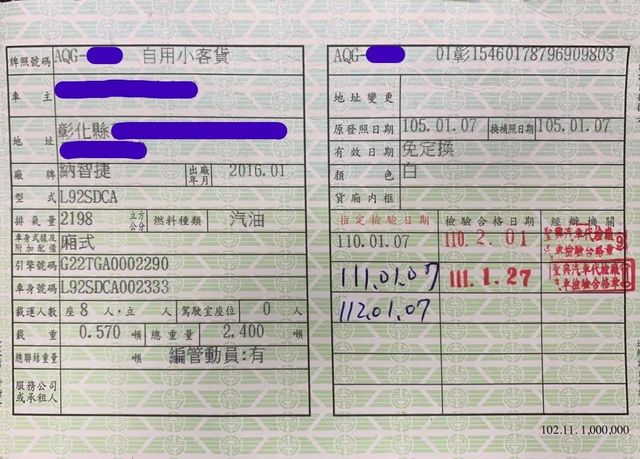 牌照號碼 AQG- 自用小客貨
車主
地址 彰化縣
廠牌 納智捷 出廠年月 2016.01
型式 L92SDCA
排氣量 2198 立方公分 燃料種類 汽油
車身式樣及附加配備 廂式
引擎號碼 G22TGA0002290
車身號碼 L92SDCA002333
載運人數 座 8 人,立 人 駕駛室座位 0 人
載重 0.570 噸 總重量 2.400 噸
總聯結重量 噸 編管動員:有
服務公司或承租人
AQG- 01彰15460178796909803
地址變更
原發照日期 105.01.07 換補照日期 105.01.07
有效日期 免定換
顏色 白
貨廂內框
指定檢驗日期 檢驗合格日期 經辦機關
110.01.07 110.2.01 聖興汽車代檢廠 汽車檢驗合格章
111.01.07 111.1.27 聖興汽車代檢廠 汽車檢驗合格章
112.01.07
102.11.1,000,000